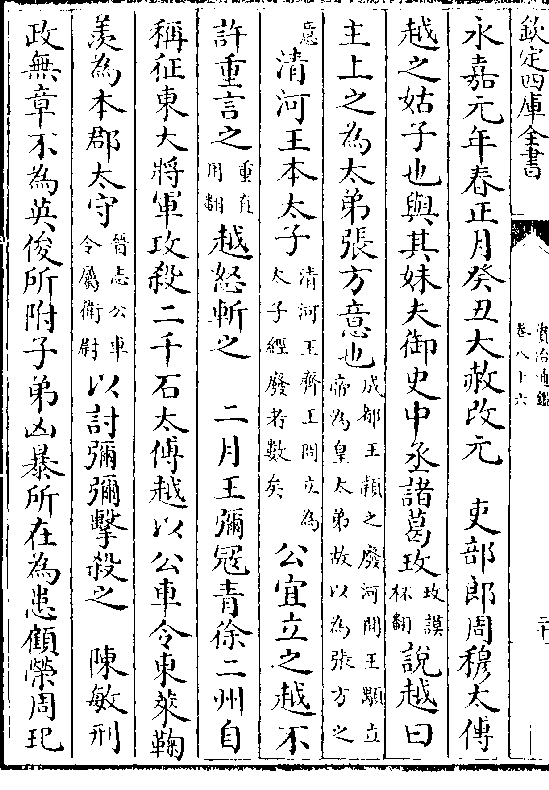 欽定四庫全書
資治通鑑
卷八十六
永嘉元年春正月癸丑大赦改元　吏部郎周穆太傅
越之姑子也與其妹夫御史中丞諸葛玫玫謨杯翻説越曰
主上之為太弟張方意也成都王穎之廢河間王顒立帝為皇太弟故以為張方之
意清河王本太子清河王齊王冏立為太子經廢者數矣公宜立之越不
許重言之重直用翻越怒斬之　二月王彌冦青徐二州自
稱征東大將軍攻殺二千石太傅越以公車令東萊鞠
羨為本郡太守晉志公車令屬衞尉以討彌彌擊殺之　陳敏刑
政無章不為英俊所附子弟凶暴所在為患顧榮周玘